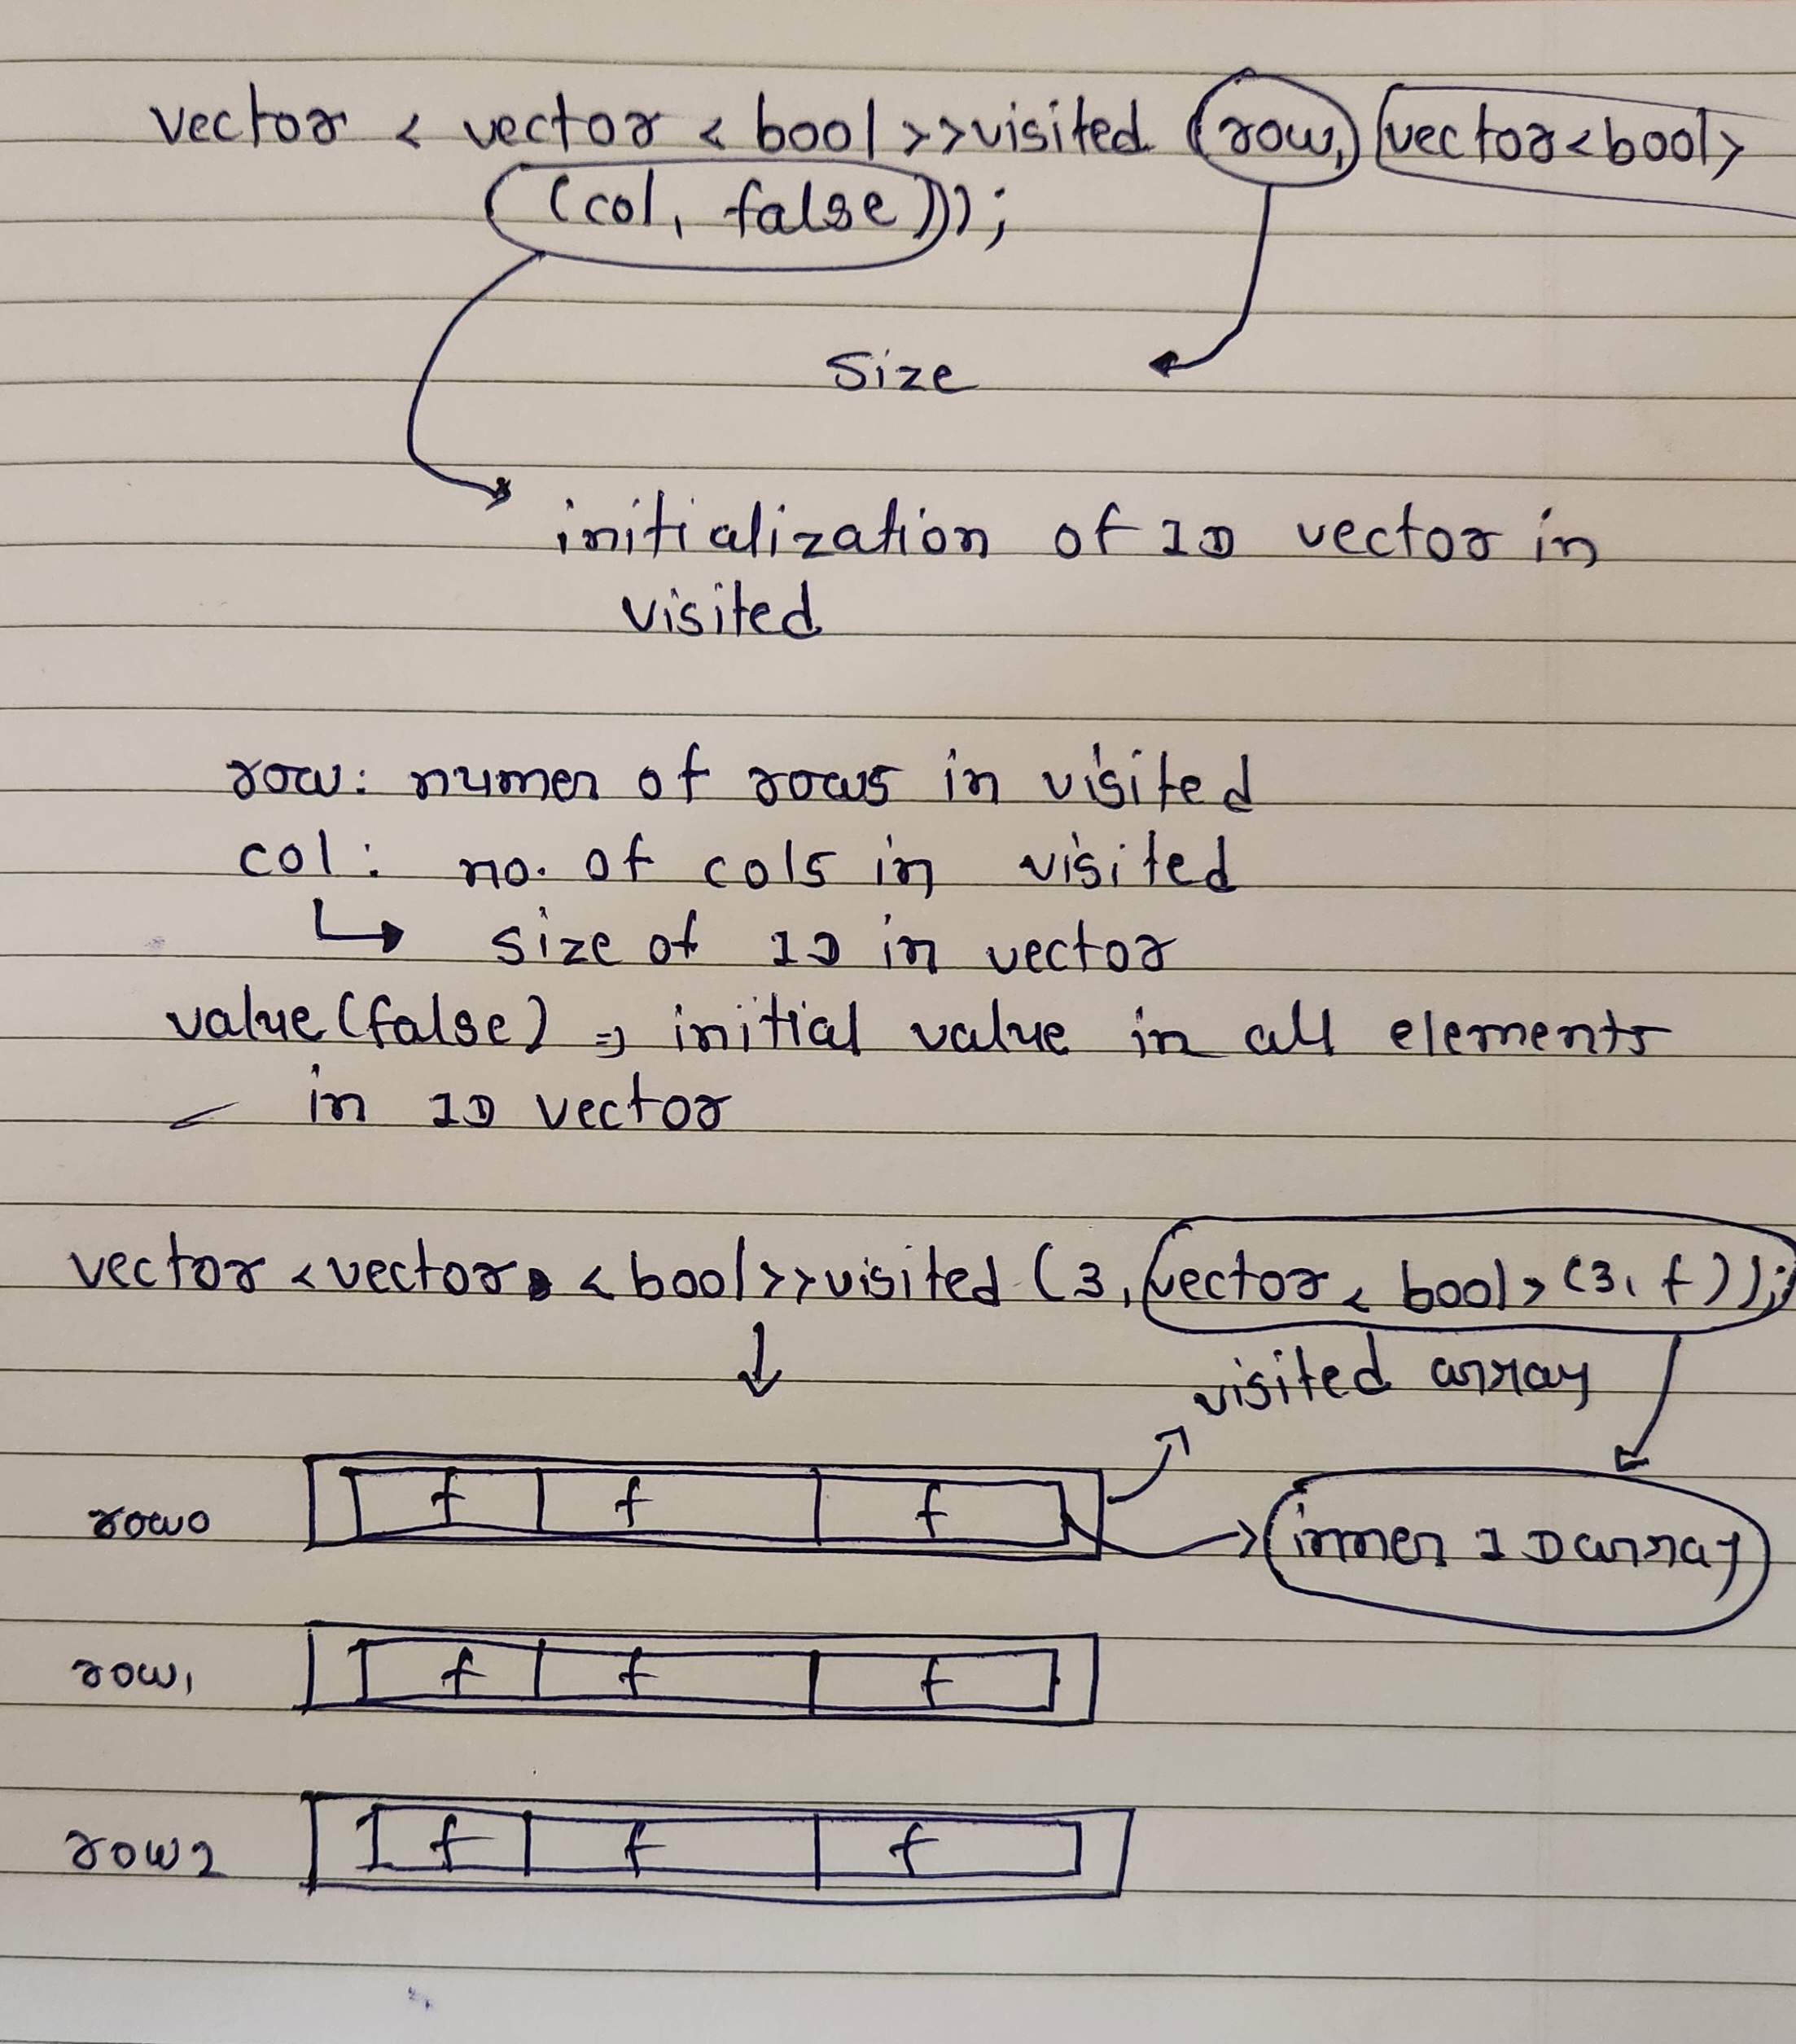 vector < vector < bool >> visited (row, vector<bool>
(col, false)));
Size
initialization of 1D vector in
visited
row: numer of rows in visited
col: no. of cols in visited
↳ size of 1D in vector
value (false) => initial value in all elements
in 1D vector
vector <vector <bool>> visited (3, vector < bool > (3, f));
visited array
row0 f f f
inner 1D array
row1 f f f
row2 f f f